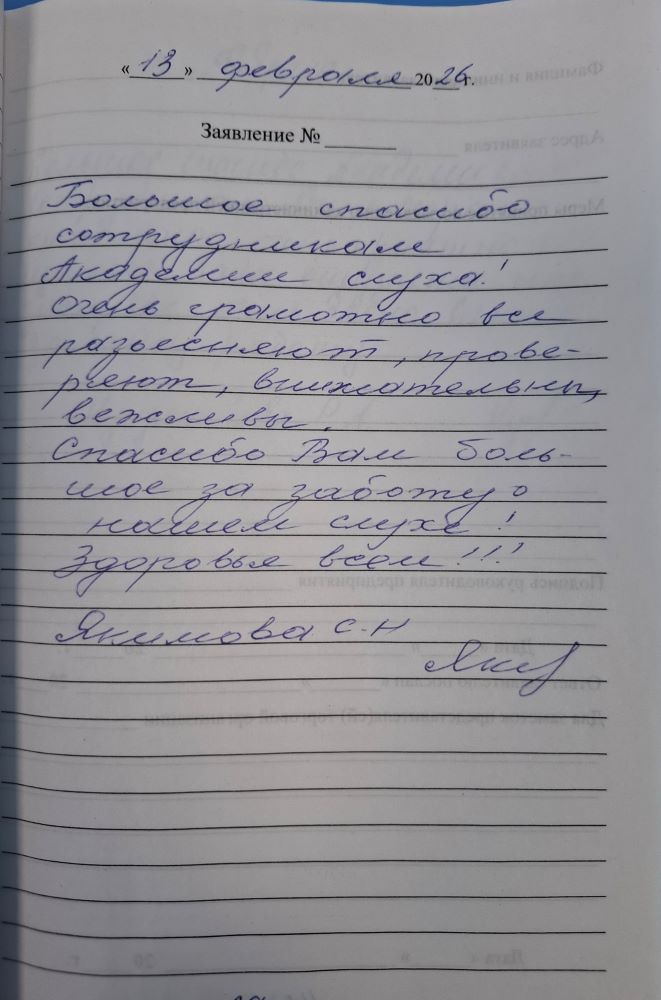 «13» февраля 2026 г.
Заявление № ______
Большое спасибо
сотрудникам
Академии слуха!
Очень грамотно все
разъесняют, прове-
ряют, внимательны,
вежливы.
Спасибо Вам боль-
шое за заботу о
нашем слухе!
Здоровья всем!!!
Якимова С.Н